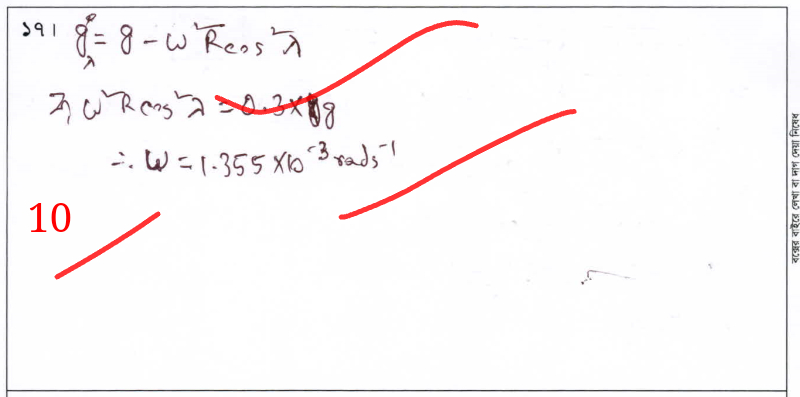 ১৭। g'_λ = g - ω²Rcos²λ
বা, ω²Rcos²λ = 0.3×g
∴ ω = 1.355×10⁻³ rads⁻¹
10
বক্সের বাইরে লেখা বা দাগ দেয়া নিষেধ